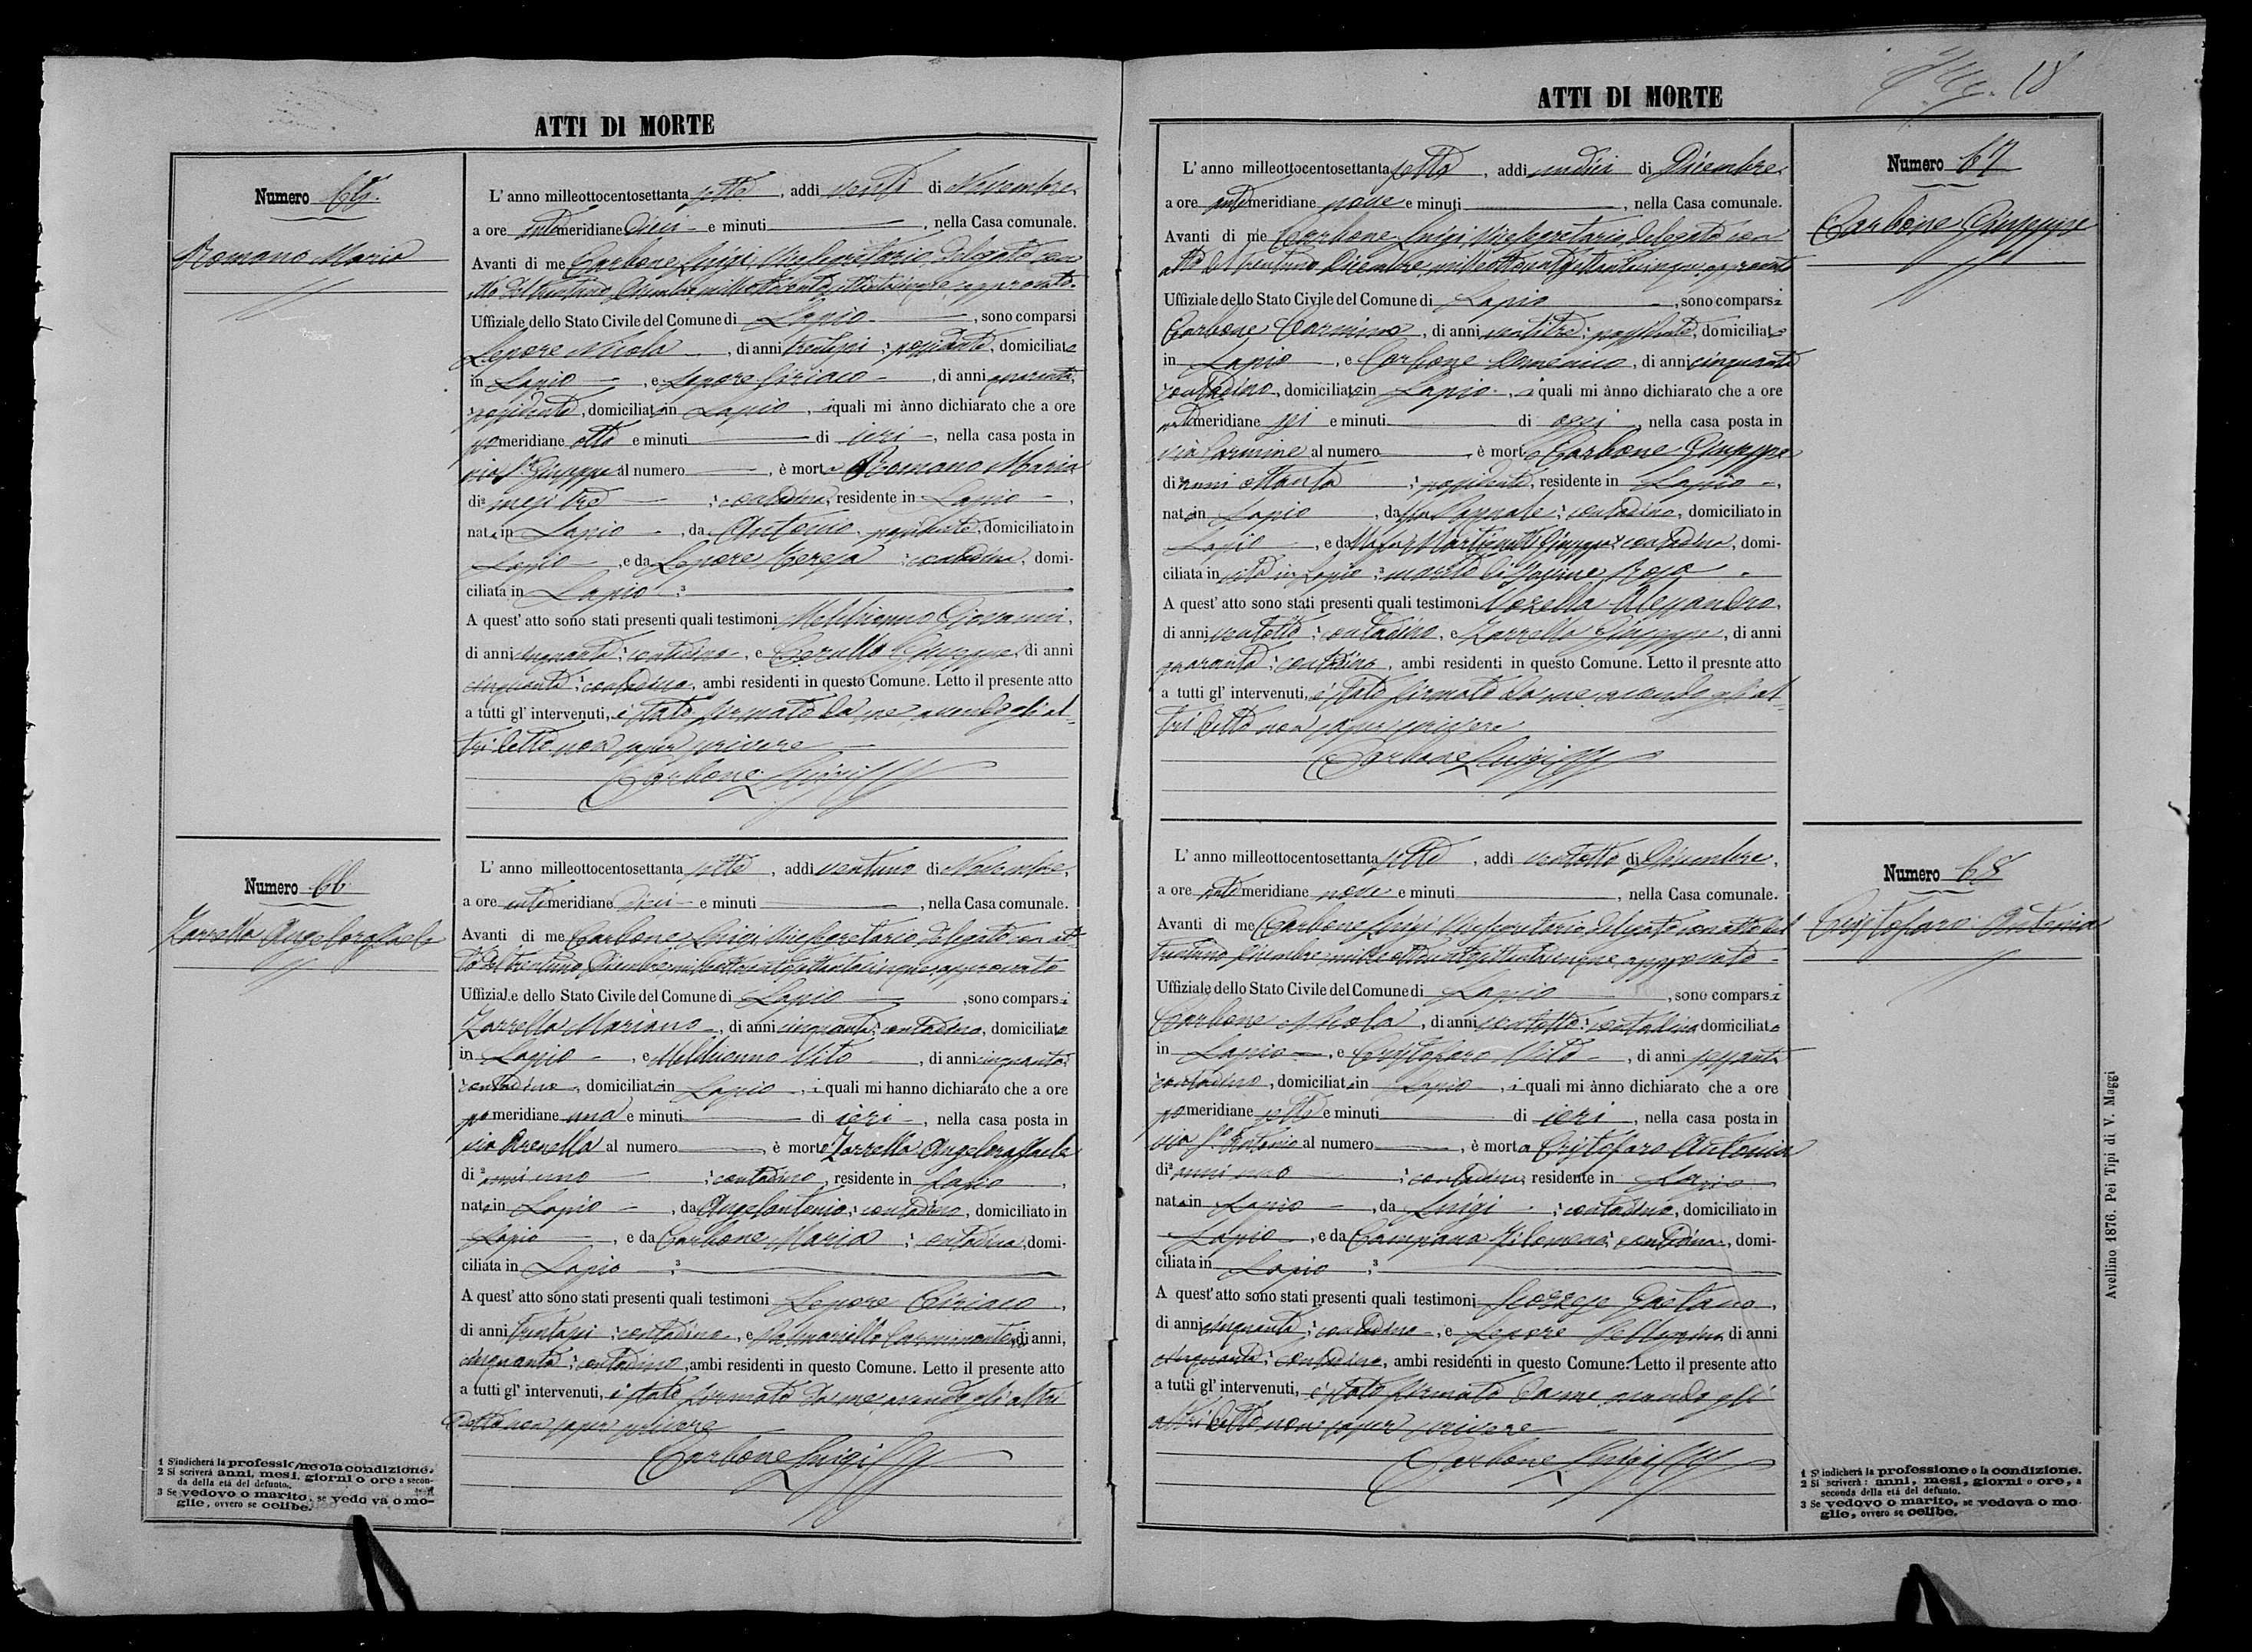 ATTI DI MORTE
Numero 65.
Romano Maria
L' anno milleottocentosettanta sette, addì venti di Novembre,
a ore antimeridiane dieci e minuti, nella Casa comunale.
Avanti di me Carbone Luigi, Vicesegretario, delegato con
atto del trentuno Dicembre milleottocentosettantacinque approvato
Uffiziale dello Stato Civile del Comune di Lapio, sono comparsi
Lepore Nicola, di anni trentasei; possidente, domiciliato
in Lapio, e Lepore Ciriaco, di anni quaranta,
possidente, domiciliato in Lapio, i quali mi ànno dichiarato che a ore
pomeridiane otto e minuti di ieri, nella casa posta in
via S. Giuseppe al numero, è morta Romano Maria
di 2 mesi tre; contadina, residente in Lapio,
nata in Lapio, da Antonio, possidente, domiciliato in
Lapio, e da Lepore Teresa; contadina, domi-
ciliata in Lapio. 3
A quest' atto sono stati presenti quali testimoni Meldrienno Giovanni,
di anni cinquanta; contadino, e Cerullo Giuseppe, di anni
cinquanta; contadino, ambi residenti in questo Comune. Letto il presente atto
a tutti gl' intervenuti, è stato firmato da me avendo gli al-
tri detto non saper scrivere
Carbone Luigi
Numero 66.
Zarrella Angeloraffaele
L' anno milleottocentosettanta sette, addì ventuno di Novembre,
a ore antimeridiane dieci e minuti, nella Casa comunale.
Avanti di me Carbone Luigi Vicesegretario delegato con at-
to del trentuno Dicembre milleottocentosettantacinque approvato
Uffiziale dello Stato Civile del Comune di Lapio, sono comparsi
Zarrella Mariano, di anni cinquanta; contadino, domiciliato
in Lapio, e Meldrienno Vito, di anni cinquanta;
contadino, domiciliato in Lapio, i quali mi hanno dichiarato che a ore
pomeridiane una e minuti di ieri, nella casa posta in
via Arenella al numero, è morto Zarrella Angeloraffaele
di 2 anni uno; contadino, residente in Lapio,
nato in Lapio, da Angelantonio; contadino, domiciliato in
Lapio, e da Carbone Maria; contadina, domi-
ciliata in Lapio. 3
A quest' atto sono stati presenti quali testimoni Lepore Ciriaco,
di anni trentasei; contadino, e Carminantonio, di anni,
cinquanta; contadino, ambi residenti in questo Comune. Letto il presente atto
a tutti gl' intervenuti, è stato firmato da me avendo gli altri
detto non saper scrivere
Carbone Luigi
1 S'indicherà la professione o la condizione.
2 Si scriverà anni, mesi, giorni o ore a secon-
da della età del defunto.
3 Se vedovo o marito, se vedova o mo-
glie, ovvero se celibe.
18
ATTI DI MORTE
Numero 67
Carbone Giuseppe
L' anno milleottocentosettanta sette, addì undici di Dicembre,
a ore antimeridiane nove e minuti, nella Casa comunale.
Avanti di me Carbone Luigi, Vicesegretario, delegato con
atto del trentuno Dicembre milleottocentosettantacinque approvato
Uffiziale dello Stato Civile del Comune di Lapio, sono comparsi
Carbone Carmine, di anni ventitre; possidente, domiciliato
in Lapio, e Carbone Domenico, di anni cinquanta
contadino, domiciliato in Lapio, i quali mi ànno dichiarato che a ore
antimeridiane sei e minuti di oggi, nella casa posta in
via Carmine al numero, è morto Carbone Giuseppe
di anni ottanta; possidente, residente in Lapio,
nato in Lapio, da fu Pasquale; contadino, domiciliato in
Lapio, e da Giuseppa; contadina, domi-
ciliata in vita in Lapio; 3 marito di Rosa
A quest' atto sono stati presenti quali testimoni Vozella Alessandro,
di anni ventotto; contadino, e Zarrella Giuseppe, di anni
quaranta; contadino, ambi residenti in questo Comune. Letto il presnte atto
a tutti gl' intervenuti, è stato firmato da me avendo gli al-
tri detto non saper scrivere
Carbone Luigi
Numero 68
Cristofaro Antonia
L' anno milleottocentosettanta sette, addì ventotto di Dicembre,
a ore antimeridiane nove e minuti, nella Casa comunale.
Avanti di me Carbone Luigi Vicesegretario delegato con atto del
trentuno Dicembre milleottocentosettantacinque approvato
Uffiziale dello Stato Civile del Comune di Lapio, sono comparsi
Carbone Nicola, di anni ventotto; contadino domiciliato
in Lapio, e Cristofaro Vito, di anni sessanta
contadino, domiciliato in Lapio, i quali mi ànno dichiarato che a ore
pomeridiane sette e minuti di ieri, nella casa posta in
via S. Antonio al numero, è morta Cristofaro Antonia
di 2 anni uno; contadina, residente in Lapio
nata in Lapio, da Luigi; contadino, domiciliato in
Lapio, e da Campana Filomena; contadina, domi-
ciliata in Lapio, 3
A quest' atto sono stati presenti quali testimoni Gaetano,
di anni cinquanta; contadino, e Lepore Pellegrino di anni
cinquanta; contadino, ambi residenti in questo Comune. Letto il presente atto
a tutti gl' intervenuti, è stato firmato da me avendo gli
altri detto non saper scrivere
Carbone Luigi
1 S'indicherà la professione o la condizione.
2 Si scriverà: anni, mesi, giorni o ore, a
seconda della età del defunto.
3 Se vedovo o marito, se vedova o mo-
glie, ovvero se celibe.
Avellino 1876. Pei Tipi di V. Maggi